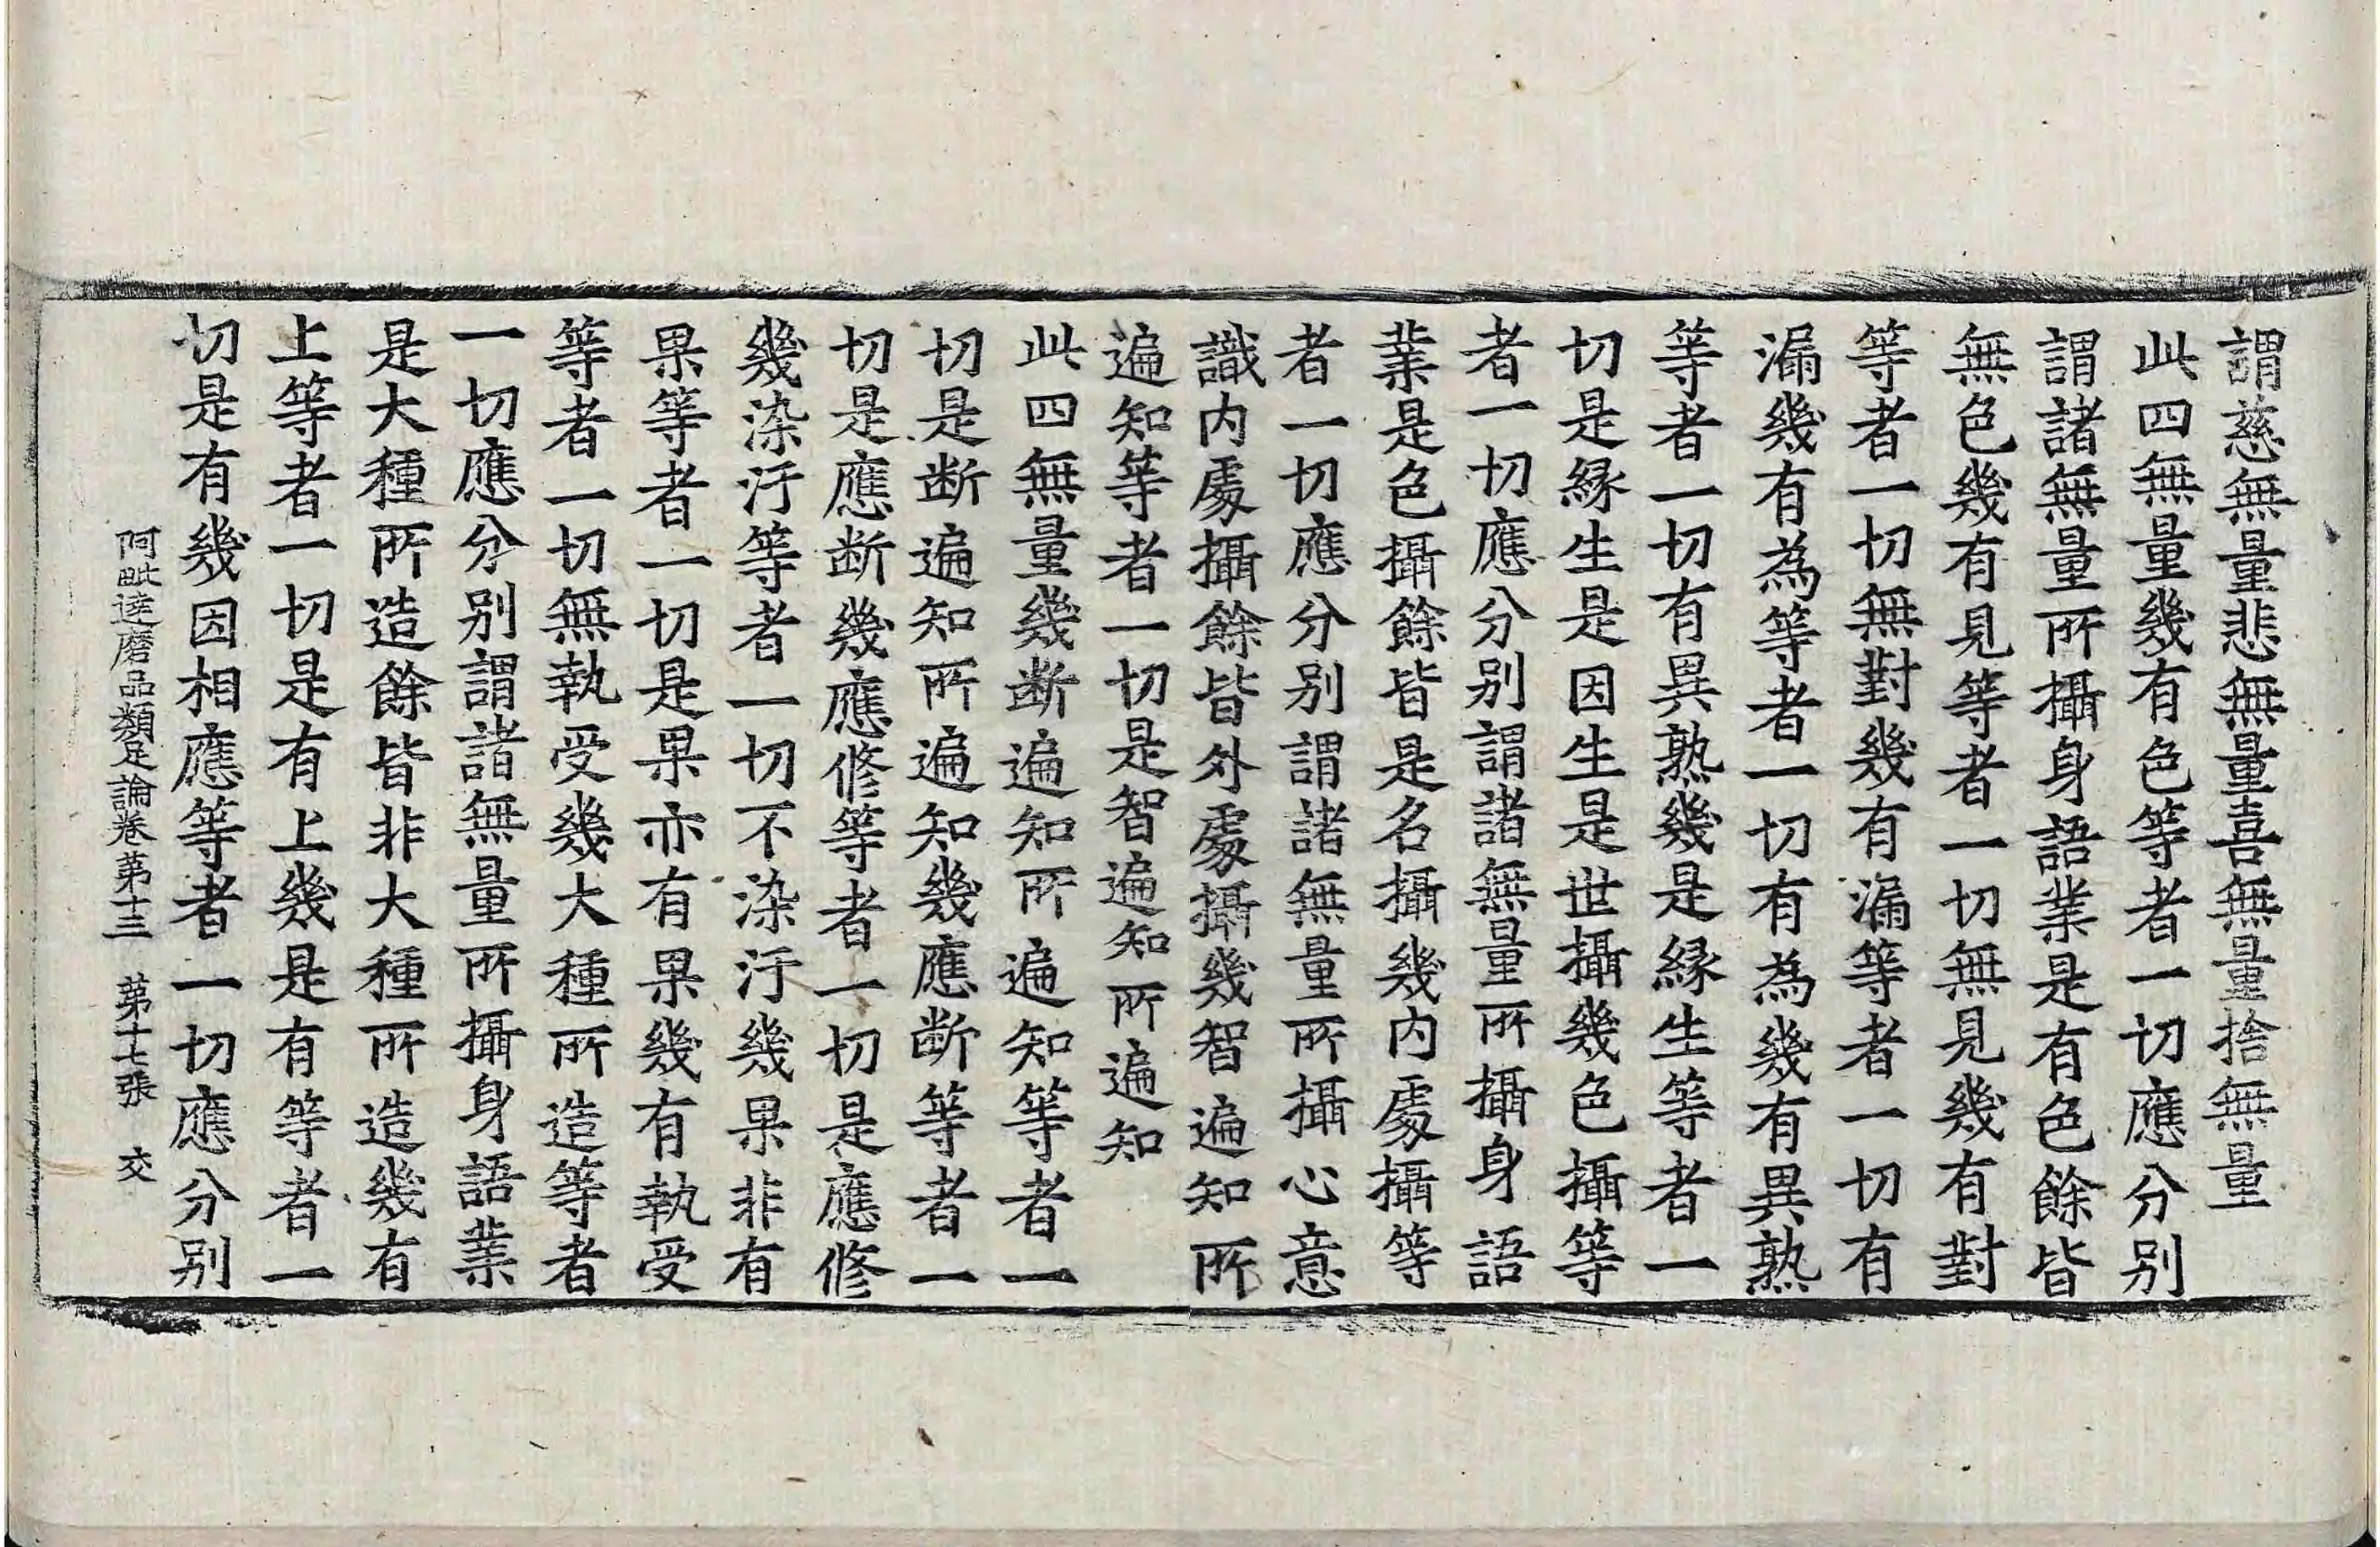 謂慈無量悲無量喜無量捨無量
此四無量幾有色等者一切應分別
謂諸無量所攝身語業是有色餘皆
無色幾有見等者一切無見幾有對
等者一切無對幾有漏等者一切有
漏幾有為等者一切有為幾有異熟
等者一切有異熟幾是緣生等者一
切是緣生是因生是世攝幾色攝等
者一切應分別謂諸無量所攝身語
業是色攝餘皆是名攝幾內處攝等
者一切應分別謂諸無量所攝心意
識內處攝餘皆外處攝幾智遍知所
遍知等者一切是智遍知所遍知
此四無量幾断遍知所遍知等者一
切是断遍知所遍知幾應断等者一
切是應断幾應修等者一切是應修
幾染汙等者一切不染汙幾果非有
果等者一切是果亦有果幾有執受
等者一切無執受幾大種所造等者
一切應分別謂諸無量所攝身語業
是大種所造餘皆非大種所造幾有
上等者一切是有上幾是有等者一
切是有幾因相應等者一切應分別
阿毗達磨品類足論卷第十三　第十七張　交